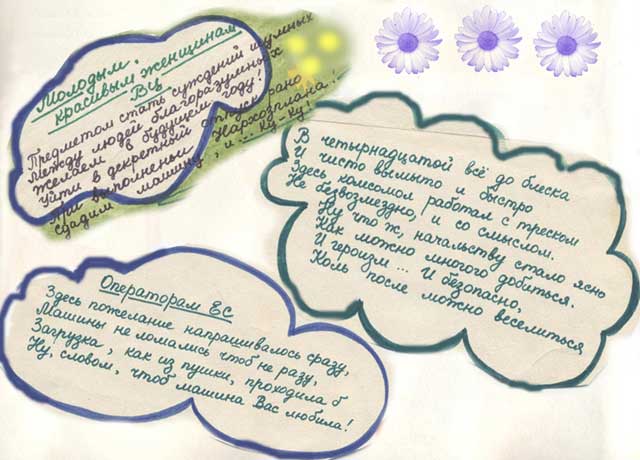 Молодым,
красивым женщинам
ВЦ
Предметом стать суждений шумных
Между людей благоразумных
Желаем в будущем году!
Уйти в декретный отпуск рано
При выполненьи Нархозплана!
Сдадим машину, и... ку-ку!
В четырнадцатой всё до блеска
И чисто вымыто и быстро
Здесь комсомол работал с треском
Не безвозмездно, и со смыслом.
Ну что ж, начальству стало ясно
Как можно многого добиться.
И героизм... И безопасно,
Коль после можно веселиться
Операторам Ес
Здесь пожелание напрашивалось сразу,
Машины не ломались чтоб не разу,
Загрузка, как из пушки, проходила б
Ну, словом, чтоб машина Вас любила!